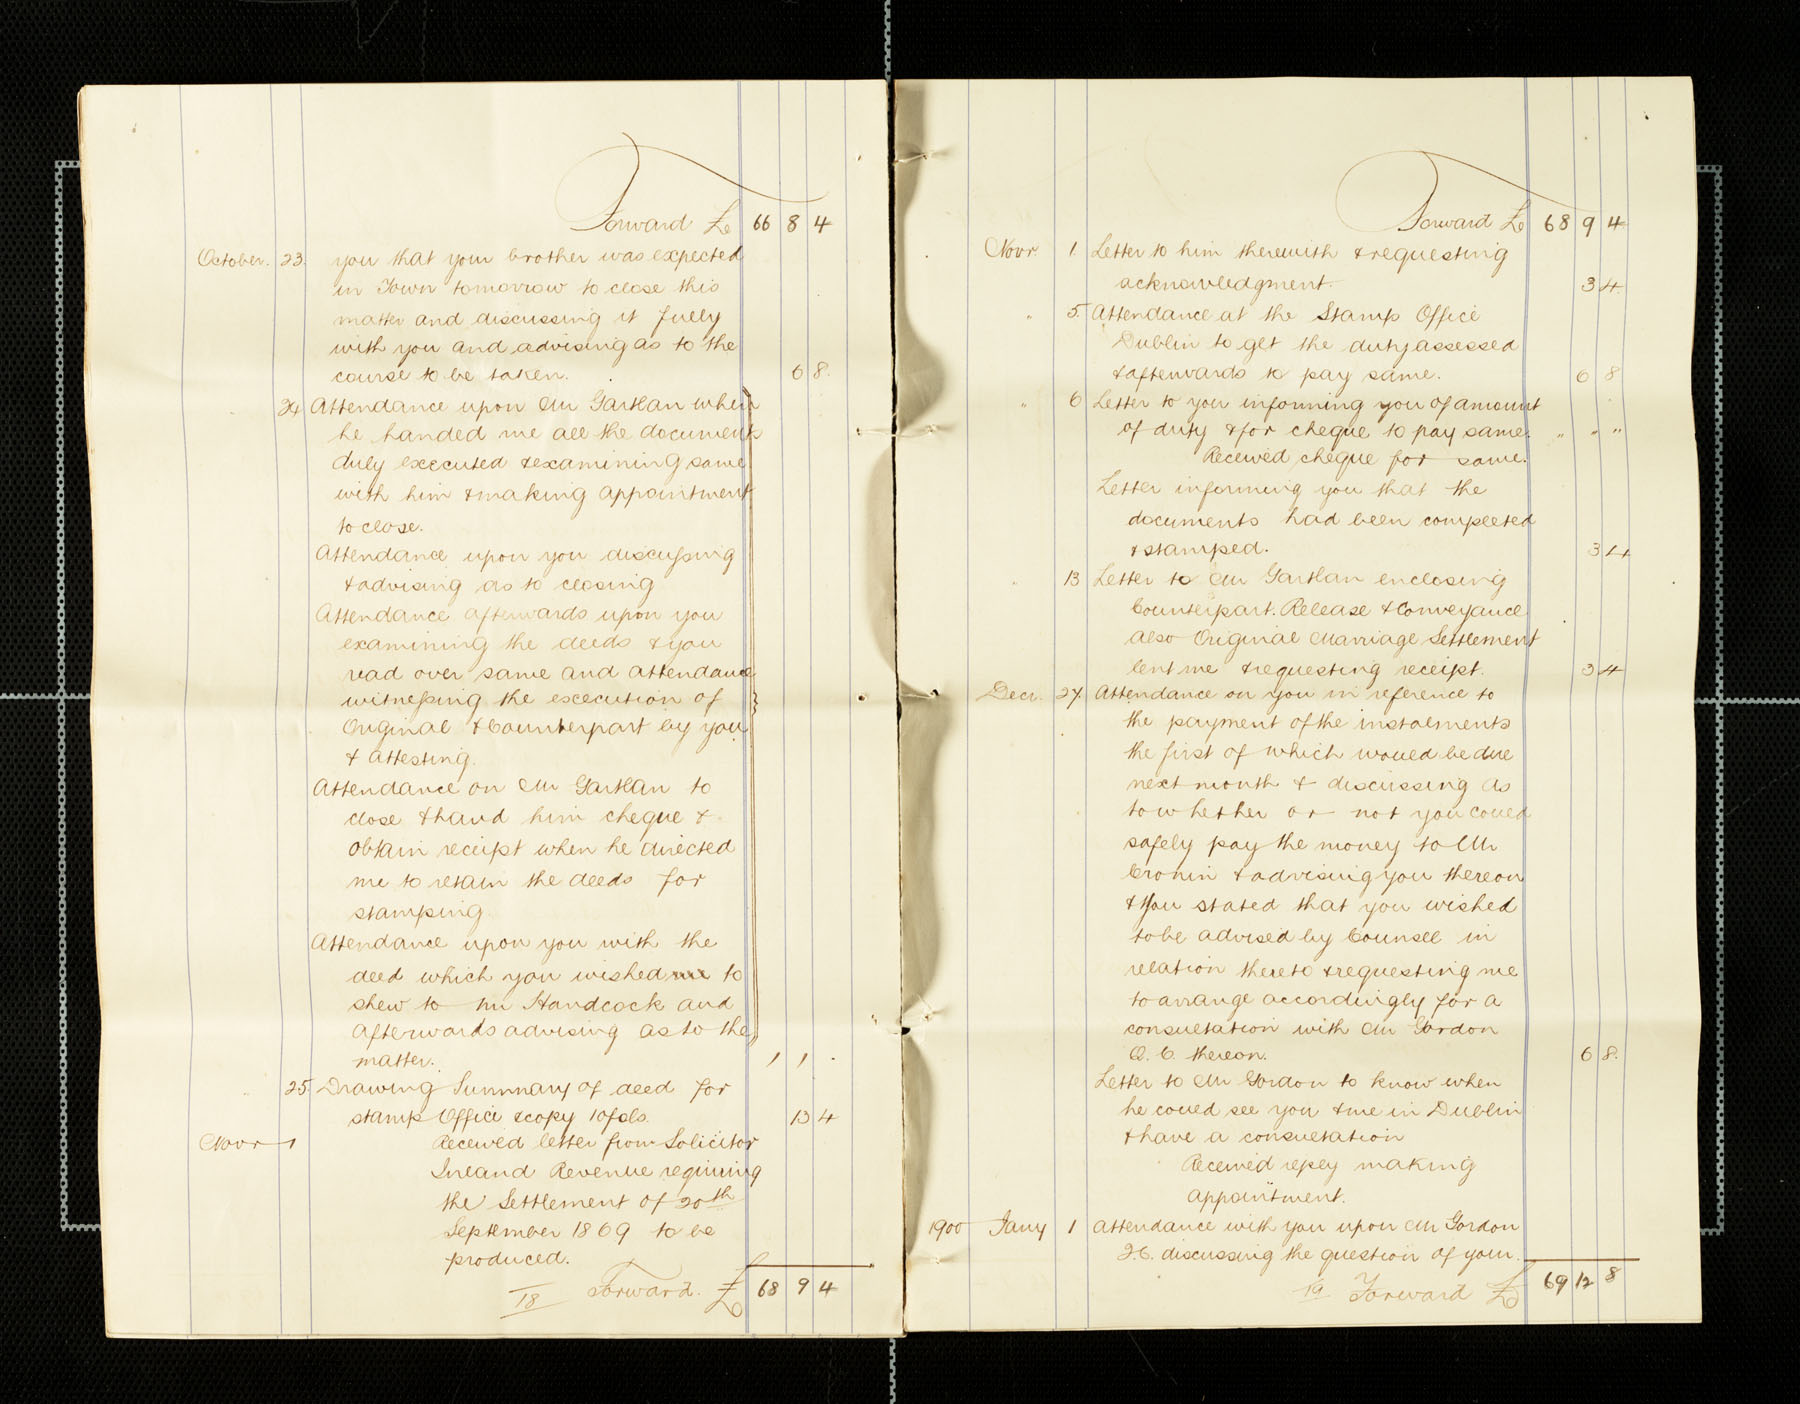 Forward £ 66 8 4
October. 23. you that your brother was expected
in Town tomorrow to close this
matter and discussing it fully
with you and advising as to the
course to be taken. 6 8.
24 Attendance upon Mr Gartlan when
he handed me all the documents
duly executed & examining same
with him & making appointment
to close.
Attendance upon you discussing
& advising as to closing
Attendance afterwards upon you
examining the deeds & you
read over same and attendance
witnessing the excecution of
Original & Counterpart by you
& attesting.
Attendance on Mr Gartlan to
close & hand him cheque &
obtain receipt when he directed
me to retain the deeds for
stamping.
Attendance upon you with the
deed which you wished me to
shew to Mr Handcock and
afterwards advising as to the
matter. 1 1 .
" 25. Drawing Summary of deed for
stamp Office & copy 10 fols. 13 4
Novr 1 Received letter from Solicitor
Inland Revenue requiring
the Settlement of 20th
September 1869 to be
produced.
18 Forward. £ 68 9 4
Forward £ 68 9 4
Novr. 1 Letter to him therewith & requesting
acknowledgment. 3 4.
" 5. Attendance at the Stamp Office
Dublin to get the duty assessed
& afterwards to pay same. 6 8
" 6 Letter to you informing you of amount
of duty & for cheque to pay same. " " "
Received cheque for same.
Letter informing you that the
documents had been completed
& stamped. 3 4
" 13 Letter to Mr Gartlan enclosing
Counterpart. Release & Conveyance
also Original Marriage Settlement
lent me & requesting receipt. 3 4
Decr. 27. Attendance on you in reference to
the payment of the instalments
the first of which would be due
next month & discussing as
to whether or not you could
safely pay the money to Mr
Cronin & advising you thereon
& you stated that you wished
to be advised by Counsel in
relation thereto & requesting me
to arrange accordingly for a
consultation with Mr Gordon
Q. C. thereon. 6 8.
Letter to Mr Gordon to know when
he could see you & me in Dublin
& have a consultation
Received reply making
appointment.
1900 Jany 1 Attendance with you upon Mr Gordon
Q.C. discussing the question of your
19 Forward £ 69 12 8